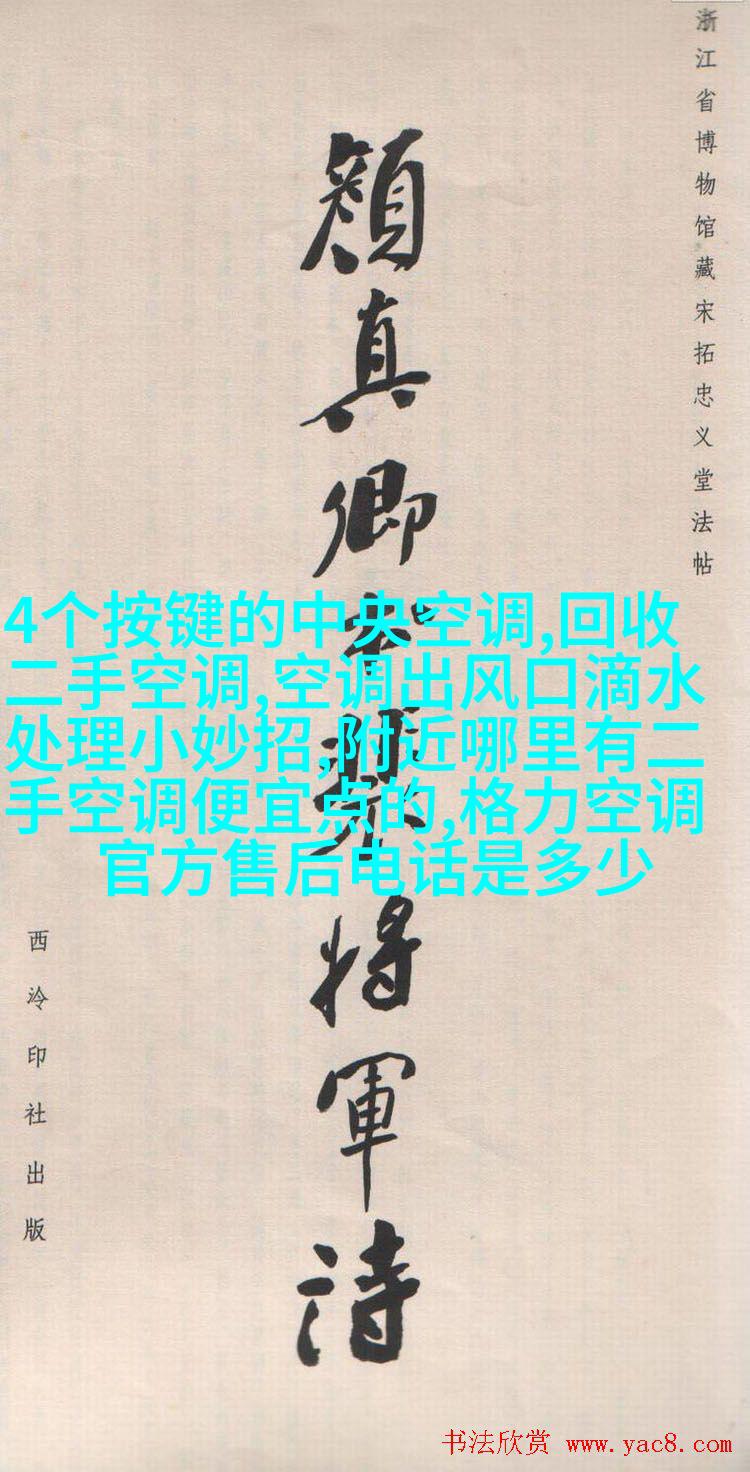 浙江省博物馆藏宋拓忠义堂法帖
顏真卿书裴将軍詩
4个按键的中央空调,回收
二手空调,空调出风口滴水
处理小妙招,附近哪里有二
手空调便宜点的,格力空调
官方售后电话是多少
西泠印社出版
书法欣赏 www.yac8.com